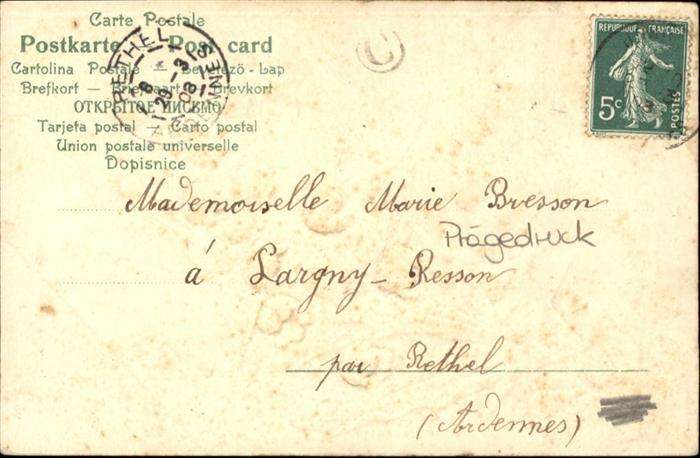 Carte Postale
Postkarte — Post card
Cartolina Postale — Levelező-Lap
Brefkort — Briefkaart — Brevkort
ОТКРЫТОЕ ПИСЬМО
Tarjeta postal — Carto postal
Union postale universelle
Dopisnice
RETHEL
ARDENNES
C
REPUBLIQUE FRANÇAISE
5c
POSTES
Mademoiselle Marie Bresson
Prägedruck
á Largny-Resson
par Rethel
(Ardennes)